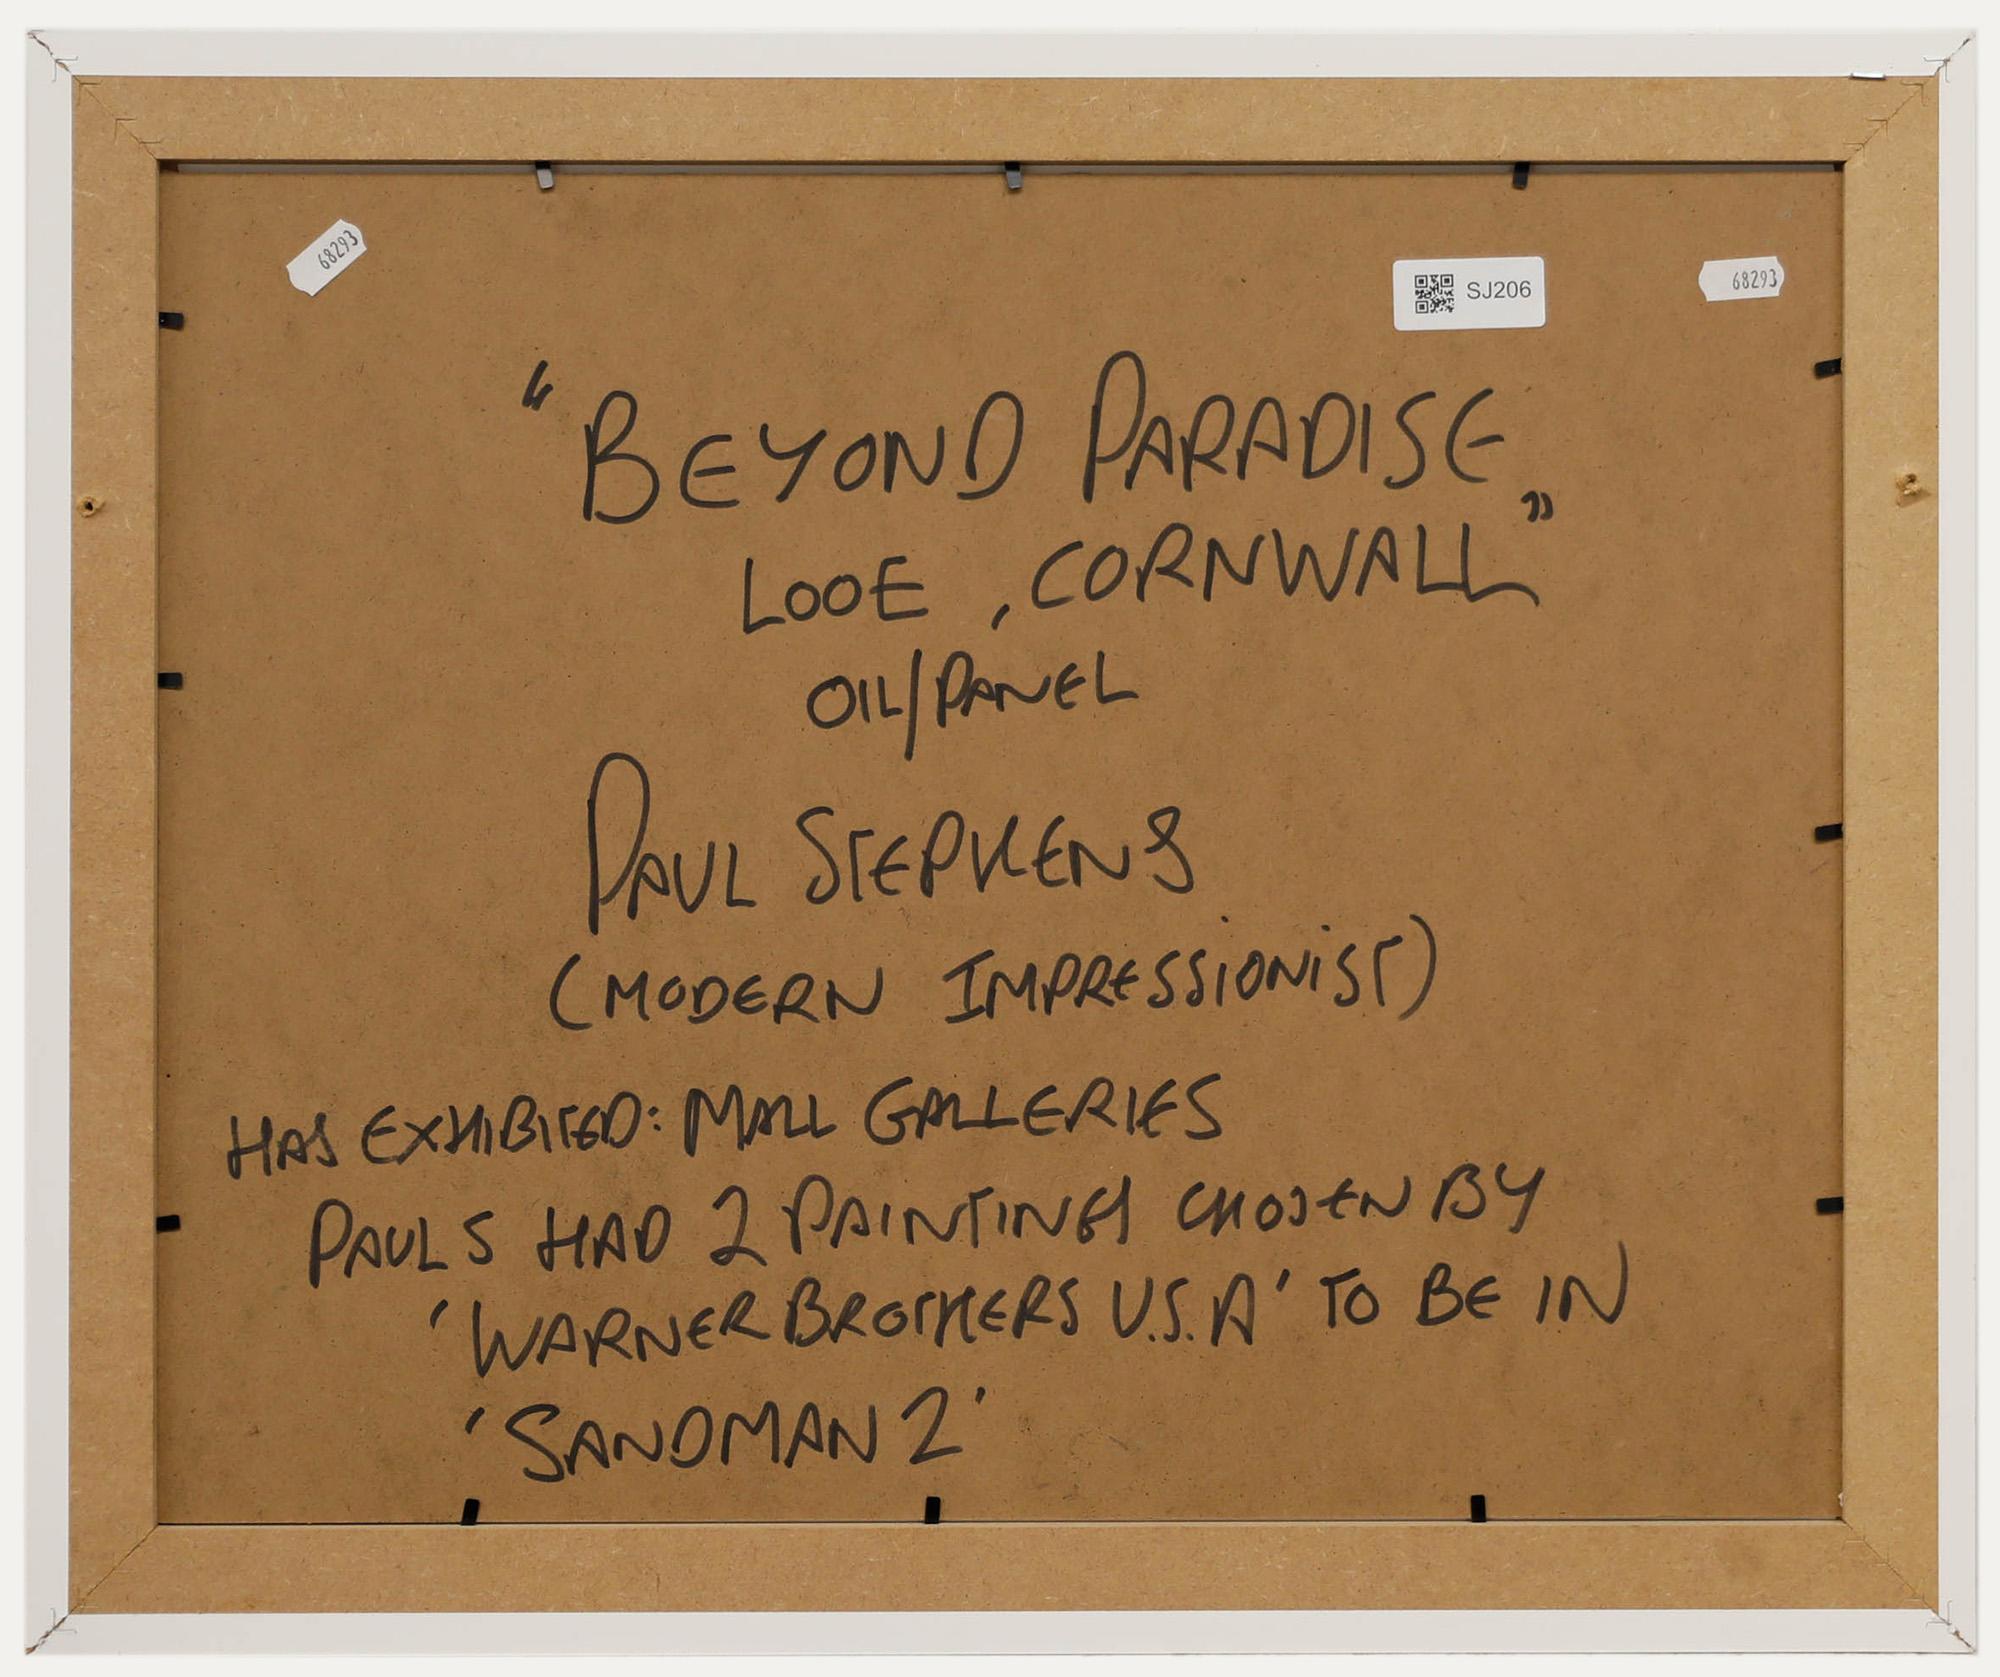 68293
SJ206
68293
"BEYOND PARADISE
LOOE, CORNWALL"
OIL/PANEL
PAUL STEPHENS
(MODERN IMPRESSIONIST)
HAS EXHIBITED: MALL GALLERIES
PAULS HAD 2 PAINTINGS CHOSEN BY
'WARNER BROTHERS U.S.A' TO BE IN
'SANDMAN 2'